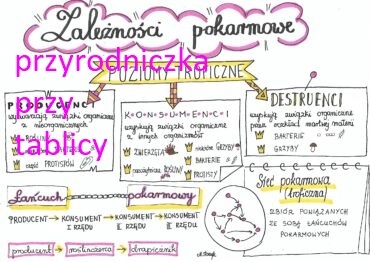 Zależności pokarmowe
przyrodniczka
przy
tablicy
POZIOMY TROFICZNE
PRODUCENCI
wytwarzają związki organiczne
z nieorganicznych
ROŚLINY
część PROTISTÓW
KONSUMENCI
uzyskują związki organiczne
z innych organizmów
ZWIERZĘTA
niektóre GRZYBY
BAKTERIE
PROTISTY
DESTRUENCI
uzyskują związki organiczne
szczątków martwej materii
BAKTERIE
GRZYBY
Łańcuch pokarmowy
PRODUCENT → KONSUMENT I RZĘDU → KONSUMENT II RZĘDU → KONSUMENT III RZĘDU
producent → roślinożerca → drapieżnik
Sieć pokarmowa
(troficzna)
ZBIÓR POWIĄZANYCH
ZE SOBĄ ŁAŃCUCHÓW
POKARMOWYCH